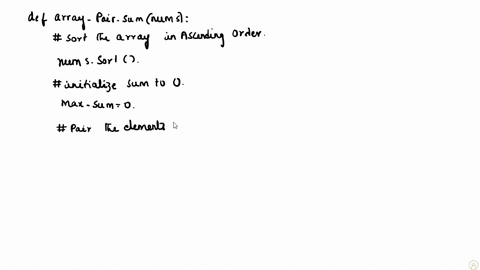 def array-Pair-sum(nums):
# Sort the array in Ascending Order.
nums.Sort().
# initialize sum to 0.
Max-sum=0.
# Pair the elements